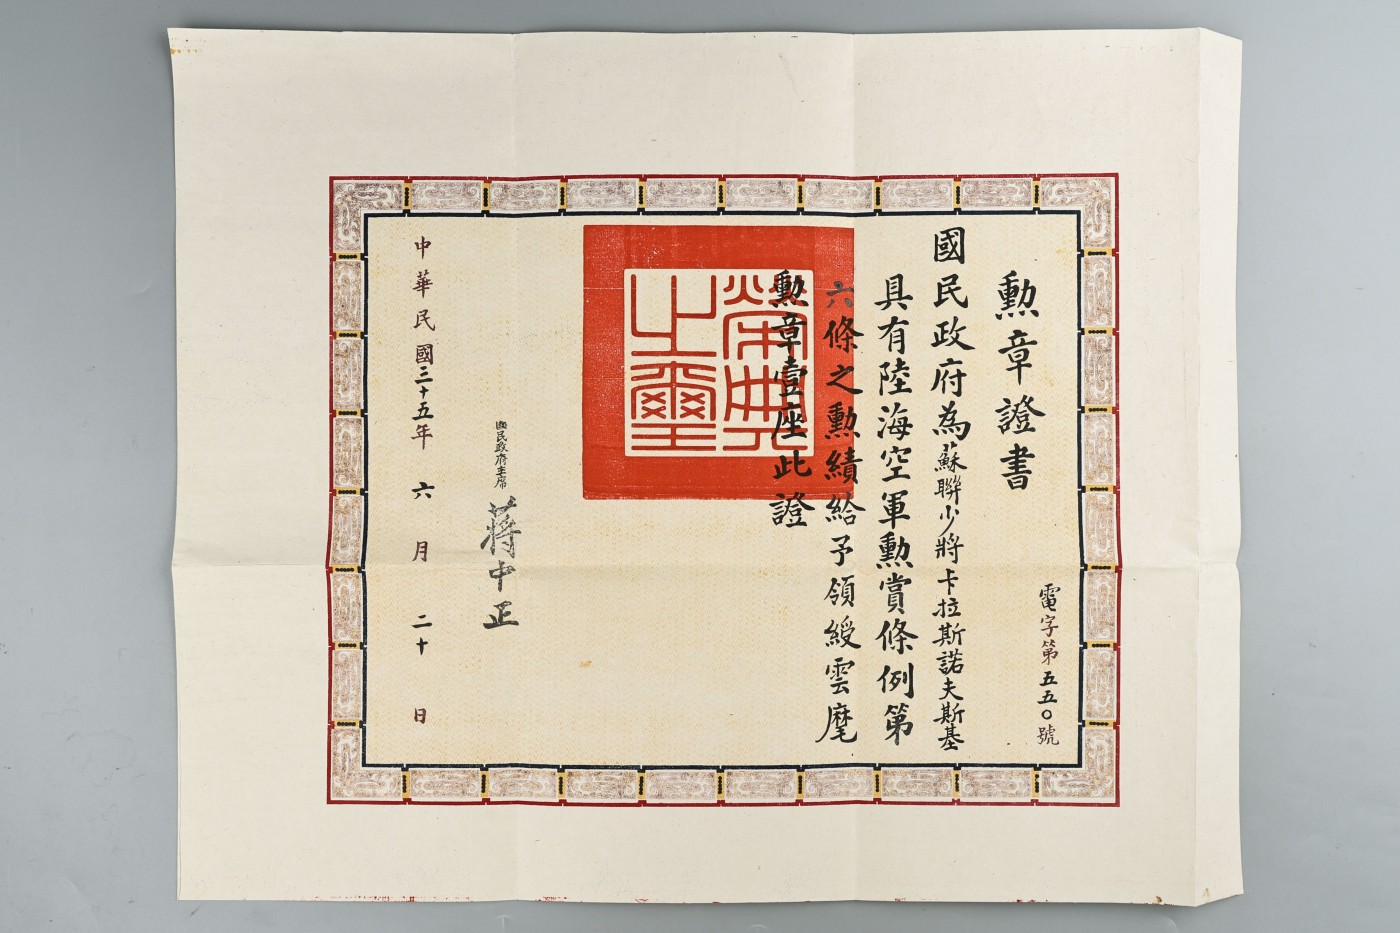 勲章證書
電字第五五〇號
國民政府為蘇聯少將卡拉斯諾夫斯基
具有陸海空軍勲賞條例第
六條之勲績給予領綬雲麾
勲章壹座此證
榮典之璽
國民政府主席
蔣中正
中華民國三十五年六月二十日